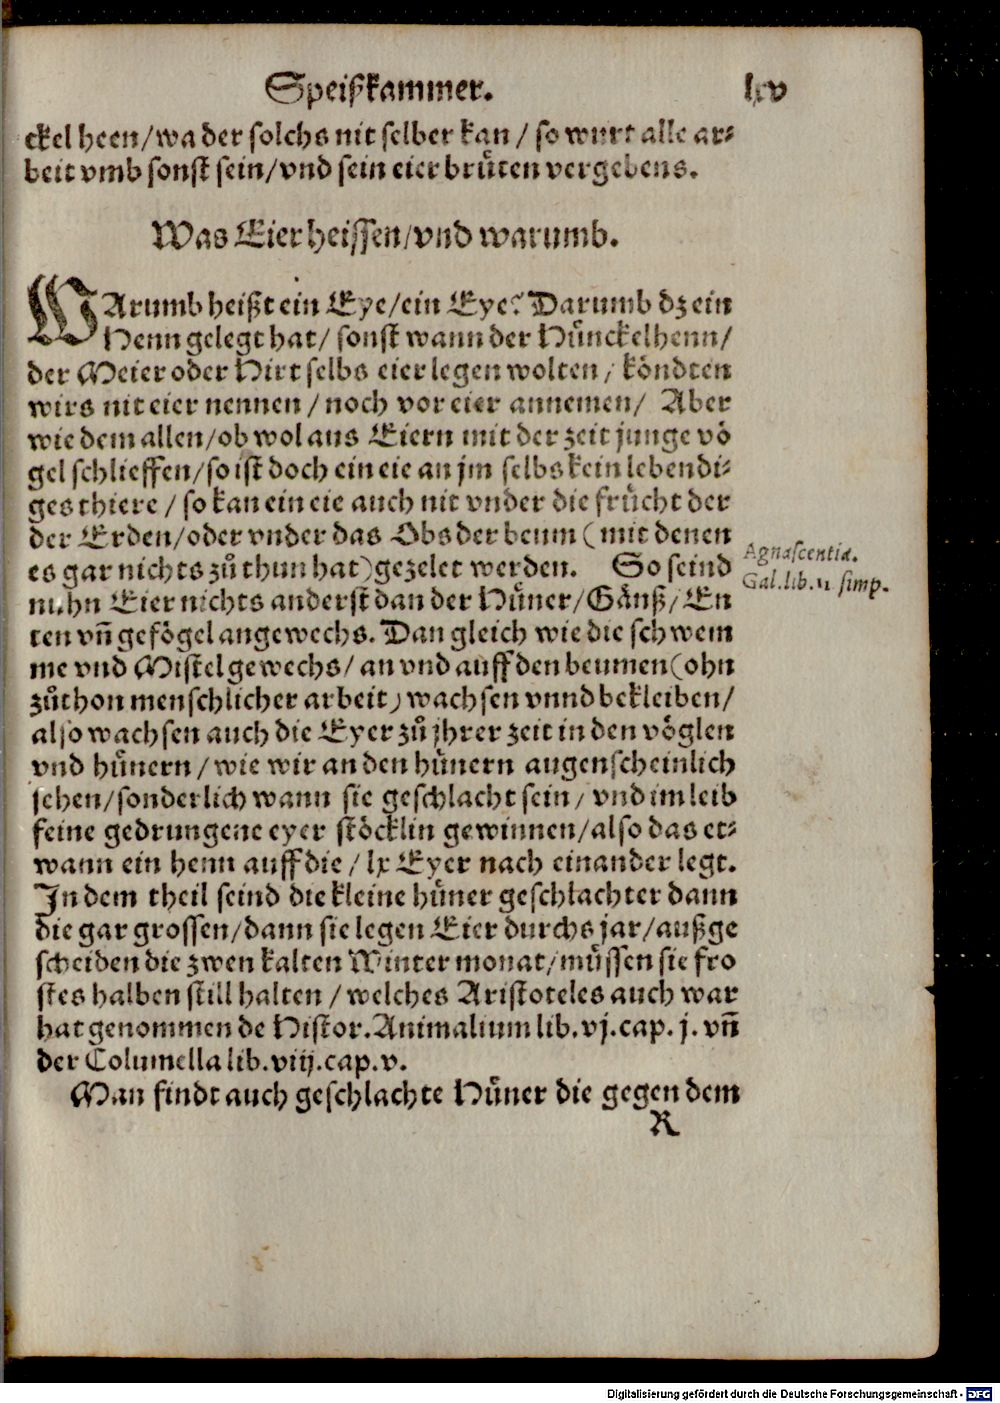 Speißkammer. lxv
ckel heen/wa der solchs nit selber kan / so wurt alle ar⸗
beit vmb sonst sein/vnd sein eier bruͤten vergebens.
Was Eier heissen/vnd warumb.
WArumb heißt ein Eye/ein Eye? Darumb dz ein
Henn gelegt hat/ sonst wann der Huͤnckelhenn/
der Meier oder Hirt selbs eier legen wolten / koͤndten
wirs nit eier nennen / noch vor eier annemen/ Aber
wie dem allen/ob wol aus Eiern mit der zeit junge voͤ
gel schlieffen/so ist doch ein eie an jm selbs kein lebendi⸗
ges thiere / so kan ein eie auch nit vnder die fruͤcht der
der Erden/oder vnder das Obs der beum (mit denen
es gar nichts zuͦ thun hat) gezelet werden. So seind
Agnascentia.
Gal.lib.11 simp.
nuhn Eier nichts anderst dan der Huͤner/Gaͤnß/En
ten vñ gefoͤgel angewechs. Dan gleich wie die schwem
me vnd Mistel gewechs/ an vnd auff den beumen (ohn
zuͦthon menschlicher arbeit) wachsen vnnd bekleiben/
also wachsen auch die Eyer zuͦ jhrer zeit in den voͤglen
vnd huͤnern / wie wir an den huͤnern augenscheinlich
sehen/sonderlich wann sie geschlacht sein / vnd im leib
feine gedrungene eyer stoͤcklin gewinnen/also das et⸗
wann ein henn auff die / lx Eyer nach einander legt.
In dem theil seind die kleine huͤner geschlachter dann
die gar grossen/dann sie legen Eier durchs jar/außge
scheiden die zwen kalten Winter monat/muͤssen sie fro
stes halben still halten / welches Aristoteles auch war
hat genommen de Histor. Animalium lib. vj. cap. j. vñ
der Columella lib. viij. cap. v.
Man findt auch geschlachte Huͤner die gegen dem
R
Digitalisierung gefördert durch die Deutsche Forschungsgemeinschaft - DFG